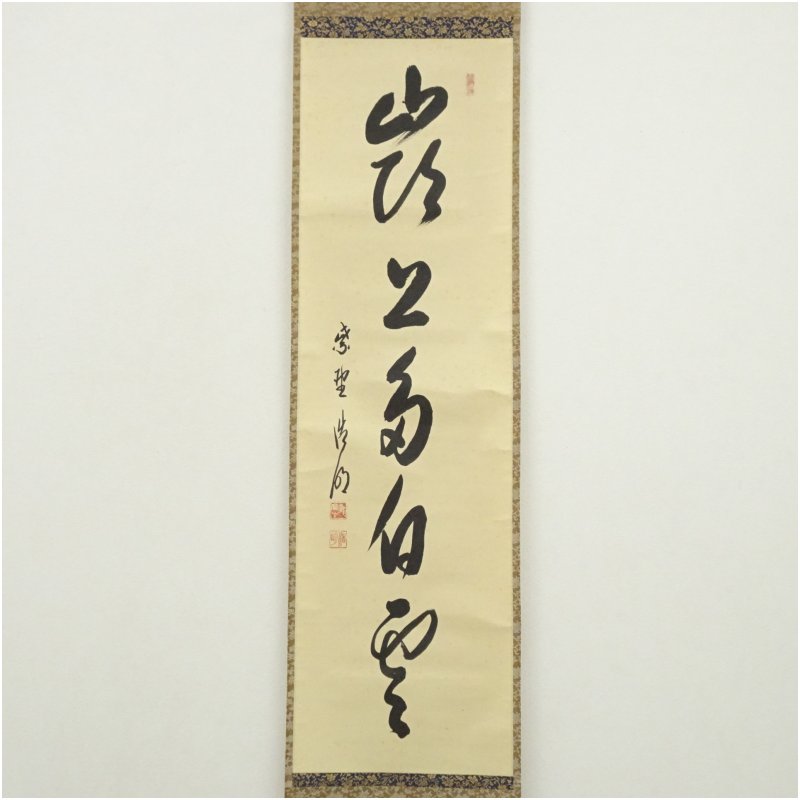 嶺上多白雲
紫野